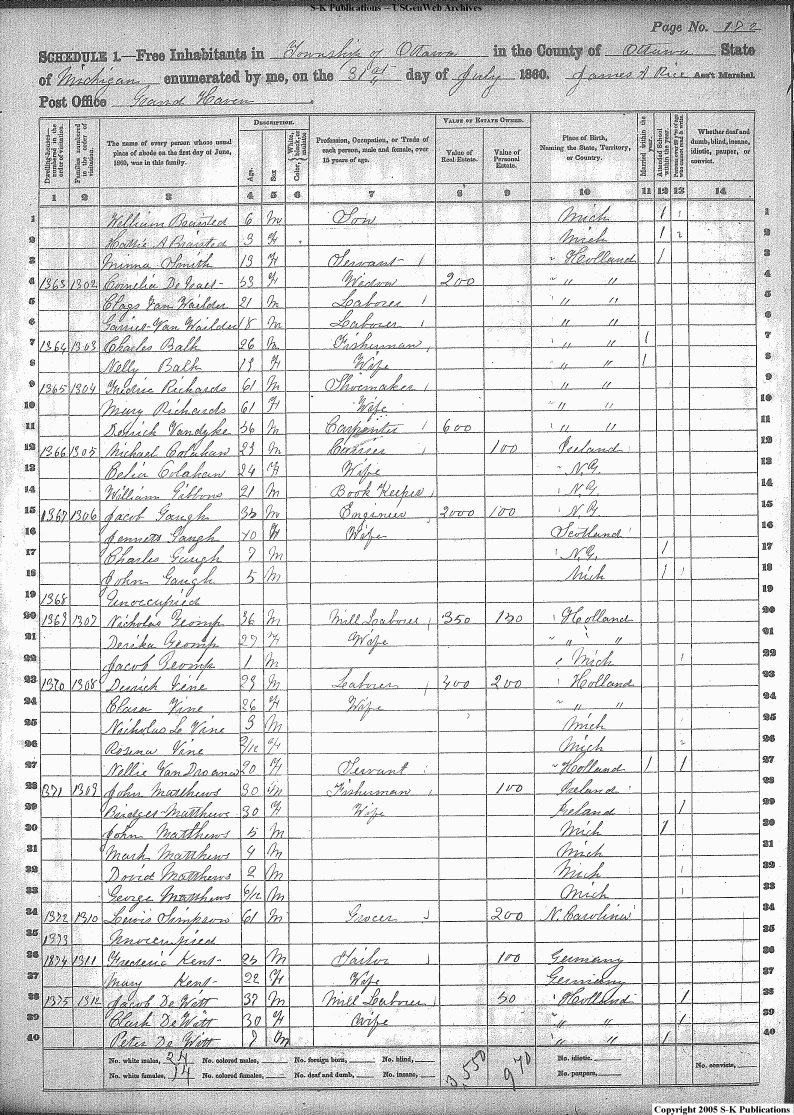 S-K Publications – USGenWeb Archives
Page No. 172
SCHEDULE 1.—Free Inhabitants in Township of Ottawa in the County of Ottawa State
of Michigan enumerated by me, on the 31st day of July 1860. James A Rice Ass't Marshal.
Post Office Grand Haven.
Dwelling-houses—numbered in the order of visitation.
Families numbered in the order of visitation.
The name of every person whose usual place of abode on the first day of June, 1860, was in this family.
DESCRIPTION.
Age.
Sex
Color, White, black, or mulatto
Profession, Occupation, or Trade of each person, male and female, over 15 years of age.
VALUE OF ESTATE OWNED.
Value of Real Estate.
Value of Personal Estate.
Place of Birth, Naming the State, Territory, or Country.
Married within the year.
Attended School within the year.
Whether deaf and dumb, blind, insane, idiotic, pauper, or convict.
1 2 3 4 5 6 7 8 9 10 11 12 13 14
1 William Braisted 6 M Son Mich / 1
2 Hattie A Braisted 3 F Mich / 2
3 Minna Smith 13 F Servant Holland / 3
4 1363 1302 Cornelia 53 F Widow 200 " " 4
5 Clays Van Wailder 21 M Laborer " " 5
6 Garries Van Wailder 18 M Laborer " " 6
7 1364 1303 Charles Balk 26 M Fisherman " " / 7
8 Nelly Balk 19 F Wife " " / 8
9 1365 1304 Fredric Richards 61 M Shoemaker " " 9
10 Mary Richards 61 F Wife " " 10
11 Derrick Vandyke 36 M Carpenter 600 " " 11
12 1366 1305 Michael Colahan 23 M 100 Ireland 12
13 Belia Colahan 24 F Wife N.Y. 13
14 William Gibbons 21 M Book Keeper N.Y. 14
15 1367 1306 Jacob Gaugh 35 M Engineer 2000 100 N.Y 15
16 Jennett Gaugh 40 F Wife Scotland 16
17 Charles Gaugh 7 M N.Y. / 17
18 John Gaugh 5 M Mich / 18
19 1368 Unoccupied 19
20 1369 1307 Nicholas Geomp 36 M Mill Laborer 350 150 Holland 20
21 Derika Geomp 27 F Wife " " 21
22 Jacob Geomp 1 M Mich 22
23 1370 1308 Derrick Vine 29 M Laborer 400 200 Holland 23
24 Clasa Vine 26 F Wife " " 24
25 Nicholas Le Vine 3 M Mich 25
26 Rosena Vine F Mich 26
27 Nellie Van Droana 20 F Servant Holland / / 27
28 1371 1309 John Matthews 30 M Fisherman 100 Ireland 28
29 Bridget Matthews 30 F Wife Ireland / 29
30 John Matthews 5 M Mich / 30
31 Mark Matthews 4 M Mich 31
32 David Matthews 2 M Mich 32
33 George Matthews 6/12 M Mich 33
34 1372 1310 Lewis Simpson 61 M Grocer 200 N. Carolina 34
35 1373 Unoccupied 35
36 1374 1311 Frederic Kent 25 M Tailor 100 Germany 36
37 Mary Kent 22 F Wife Germany 37
38 1375 1312 Jacob De Witt 37 M Mill Laborer 50 Holland / 38
39 Clark De Witt 30 F Wife " " / 39
40 Peter De Witt 7 M " " / 40
No. white males, 24 No. colored males, No. foreign born, No. blind, 3,550 970 No. idiotic, No. convicts,
No. white females, 14 No. colored females, No. deaf and dumb, No. insane, No. paupers,
Copyright 2005 S-K Publications